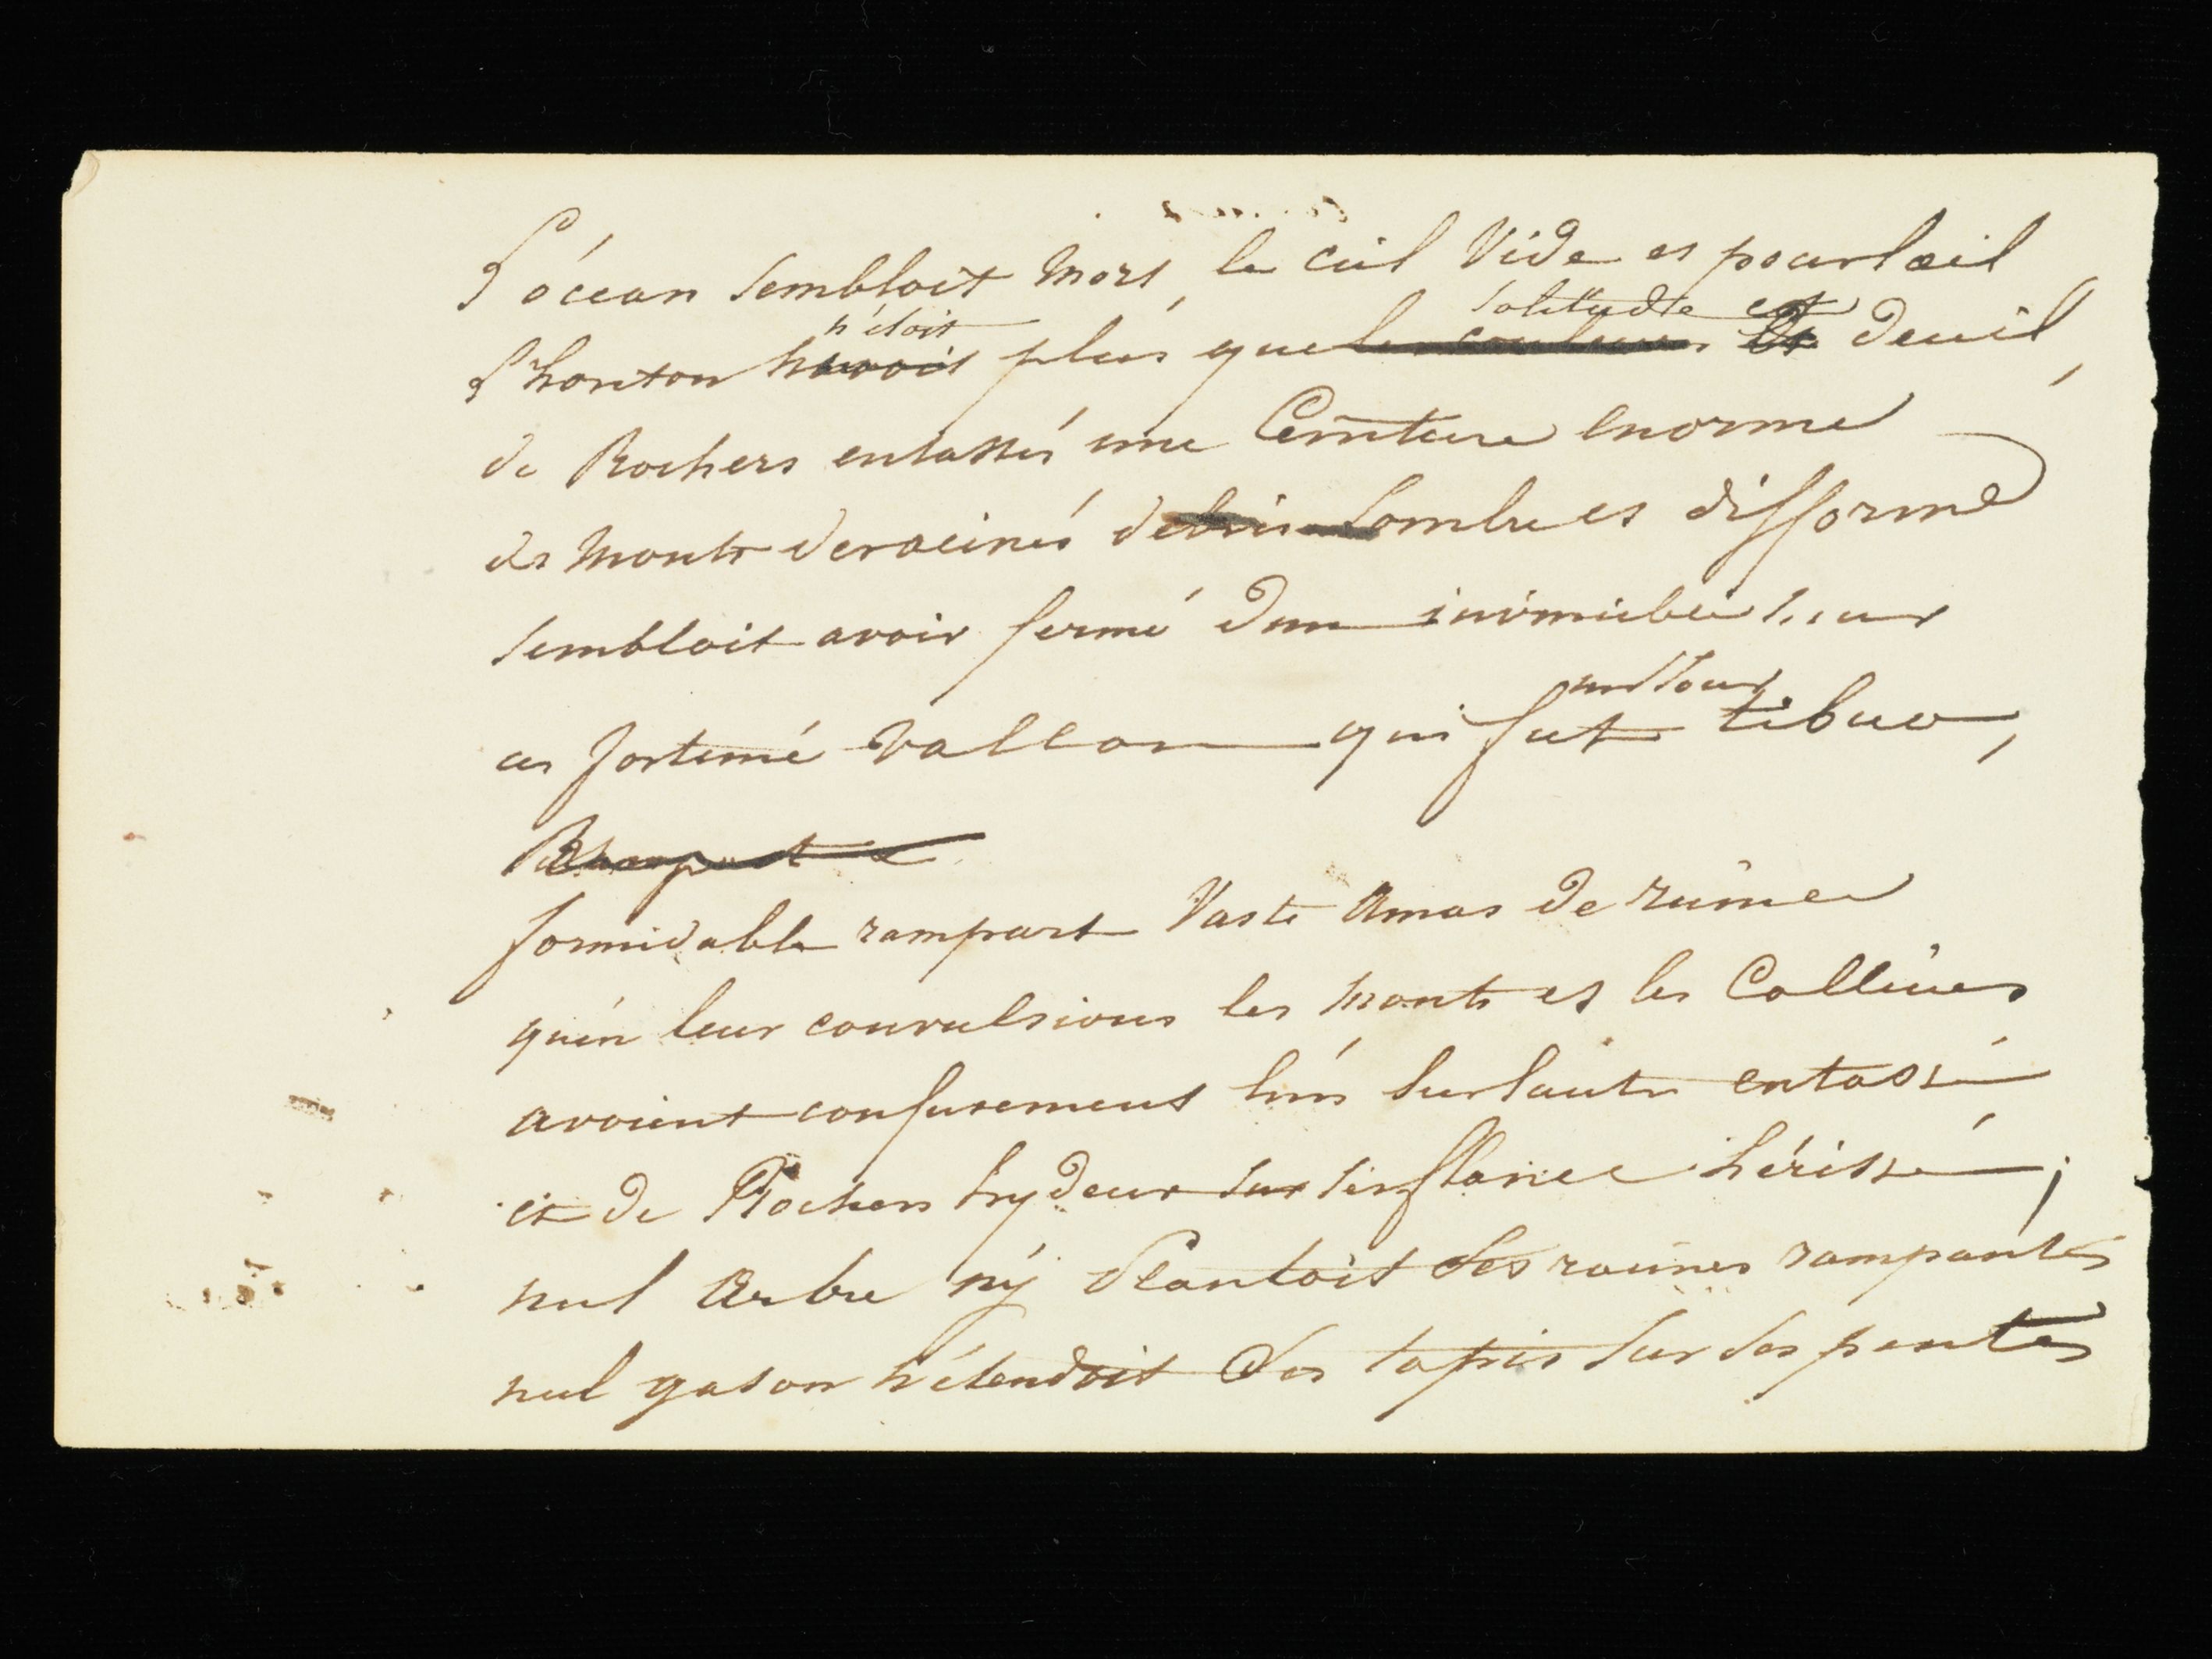 L'océan sembloit mort, le ciel vide et pour l'œil
n'étoit solitude et
L'horison n'avoit plus que les couleurs de deuil,
de Rochers entassés une Ceinture enorme
de monts deracinés debris sombre et difforme
sembloit avoir fermé d'un
un jour
ce fortuné vallon qui fut tibur,
Rempart
formidable rempart vaste amas de ruines
qu'en leur convulsions les monts et les Collines
avoient confusement l'un sur l'autre entassé
et de Rochers hydeux sur ses flancs hérissé;
nul arbre n'y plantoit ses racines rampantes
nul gason n'étendoit ses tapis sur ses pentes